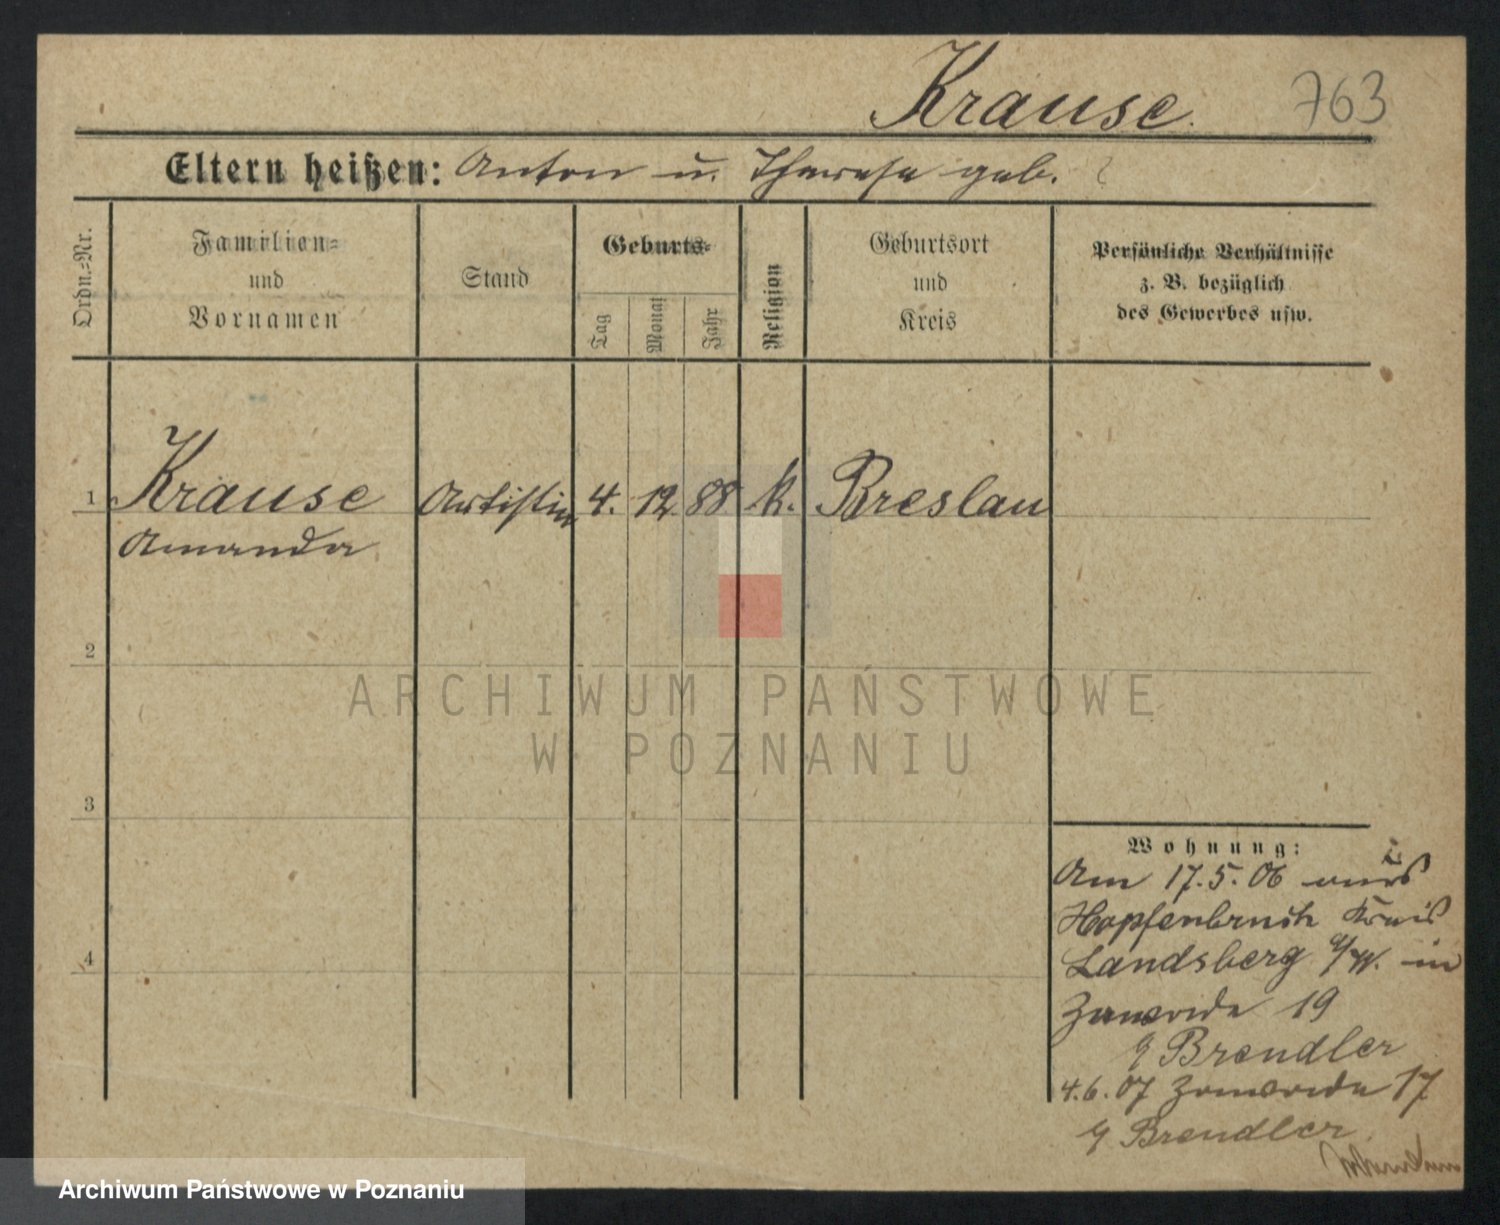 Krause.
763
Eltern heißen: Anton u. Therese geb. ?
Ordn.=Nr.
Familien=
und
Vornamen
Stand
Geburts=
Tag
Monat
Jahr
Religion
Geburtsort
und
Kreis
Persönliche Verhältnisse
z. B. bezüglich
des Gewerbes usw.
1 Krause Artistin 4. 12. 88 k. Breslau
Amanda
2
3
4
ARCHIWUM PAŃSTWOWE
W POZNANIU
Wohnung:
Am 17.5.06 aus
Hopfenbruch Kreis
Landsberg a/W. in
Zawade 19
b/ Brendler
4.6.07 Zawade 17
b/ Brendler
Archiwum Państwowe w Poznaniu